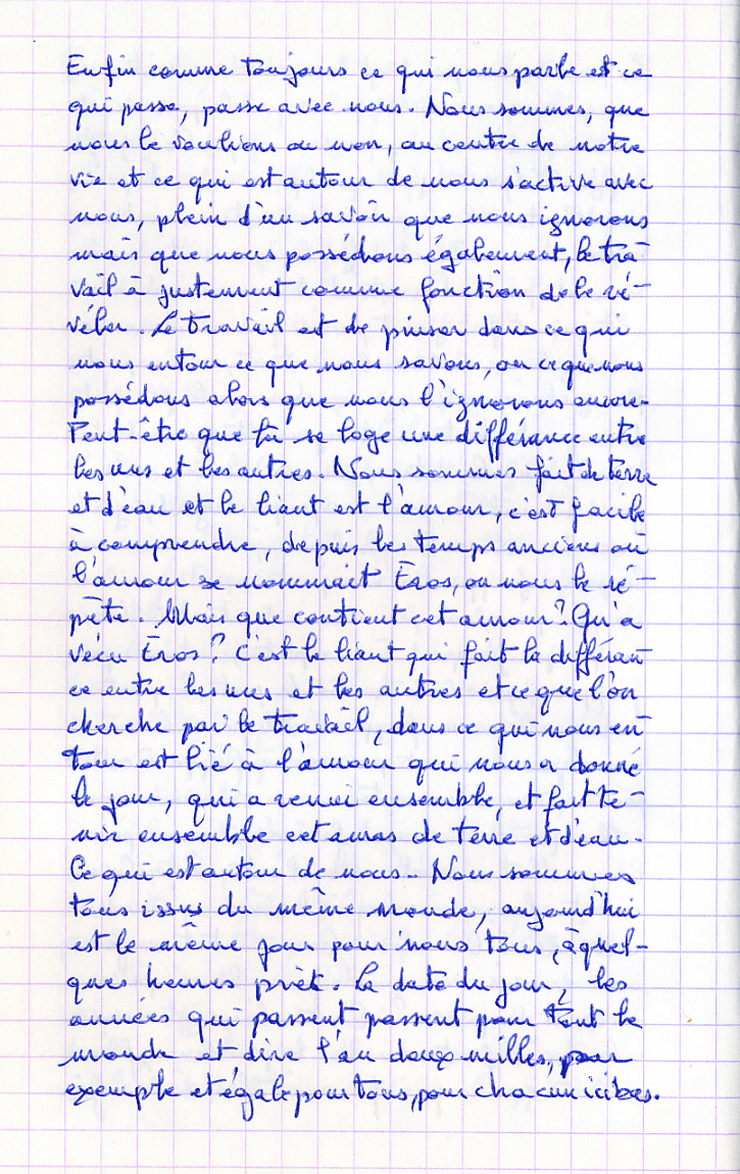 Enfin comme toujours ce qui nous parle et ce
qui passe, passe avec nous. Nous sommes, que
nous le voulions ou non, au centre de notre
vie et ce qui est autour de nous s'active avec
nous, plein d'un savoir que nous ignorons
mais que nous possédons également, le tra-
vail à justement comme fonction de le ré-
véler. Le travail est de puiser dans ce qui
nous entour ce que nous savons, ou ce que nous
possédons alors que nous l'ignorons encore.
Peut-être que là se loge une différance entre
les uns et les autres. Nous sommes fait de terre
et d'eau et le liant est l'amour, c'est facile
à comprendre, depuis les temps anciens où
l'amour se nommait Éros, on nous le ré-
pète. Mais que contient cet amour? Qu'a
vécu Éros? C'est le liant qui fait la différan-
ce entre les uns et les autres et ce que l'on
cherche par le travail, dans ce qui nous en-
tour est lié à l'amour qui nous a donné
le jour, qui a reuni ensemble, et fait te-
nir ensemble cet amas de terre et d'eau.
Ce qui est autour de nous. Nous sommes
tous issus du même monde, aujourd'hui
est le même jour pour nous tous, à quel-
ques heures prèt. La date du jour, les
années qui passent passent pour tout le
monde et dire l'an deux milles, pour
exemple et égale pour tous, pour chacun ici bas.